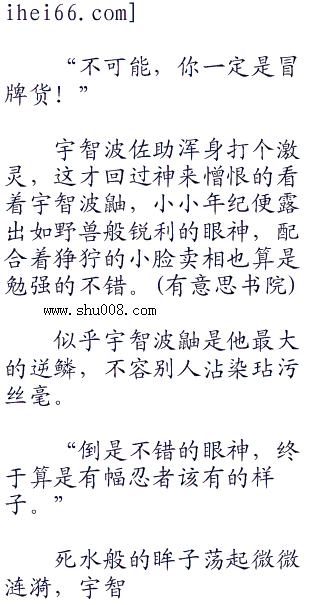 ihei66.com]
“不可能，你一定是冒
牌货！”
宇智波佐助浑身打个激
灵，这才回过神来憎恨的看
着宇智波鼬，小小年纪便露
出如野兽般锐利的眼神，配
合着狰狞的小脸卖相也算是
勉强的不错。(有意思书院)
www.shu008.com
似乎宇智波鼬是他最大
的逆鳞，不容别人沾染玷污
丝毫。
“倒是不错的眼神，终
于算是有幅忍者该有的样
子。”
死水般的眸子荡起微微
涟漪，宇智